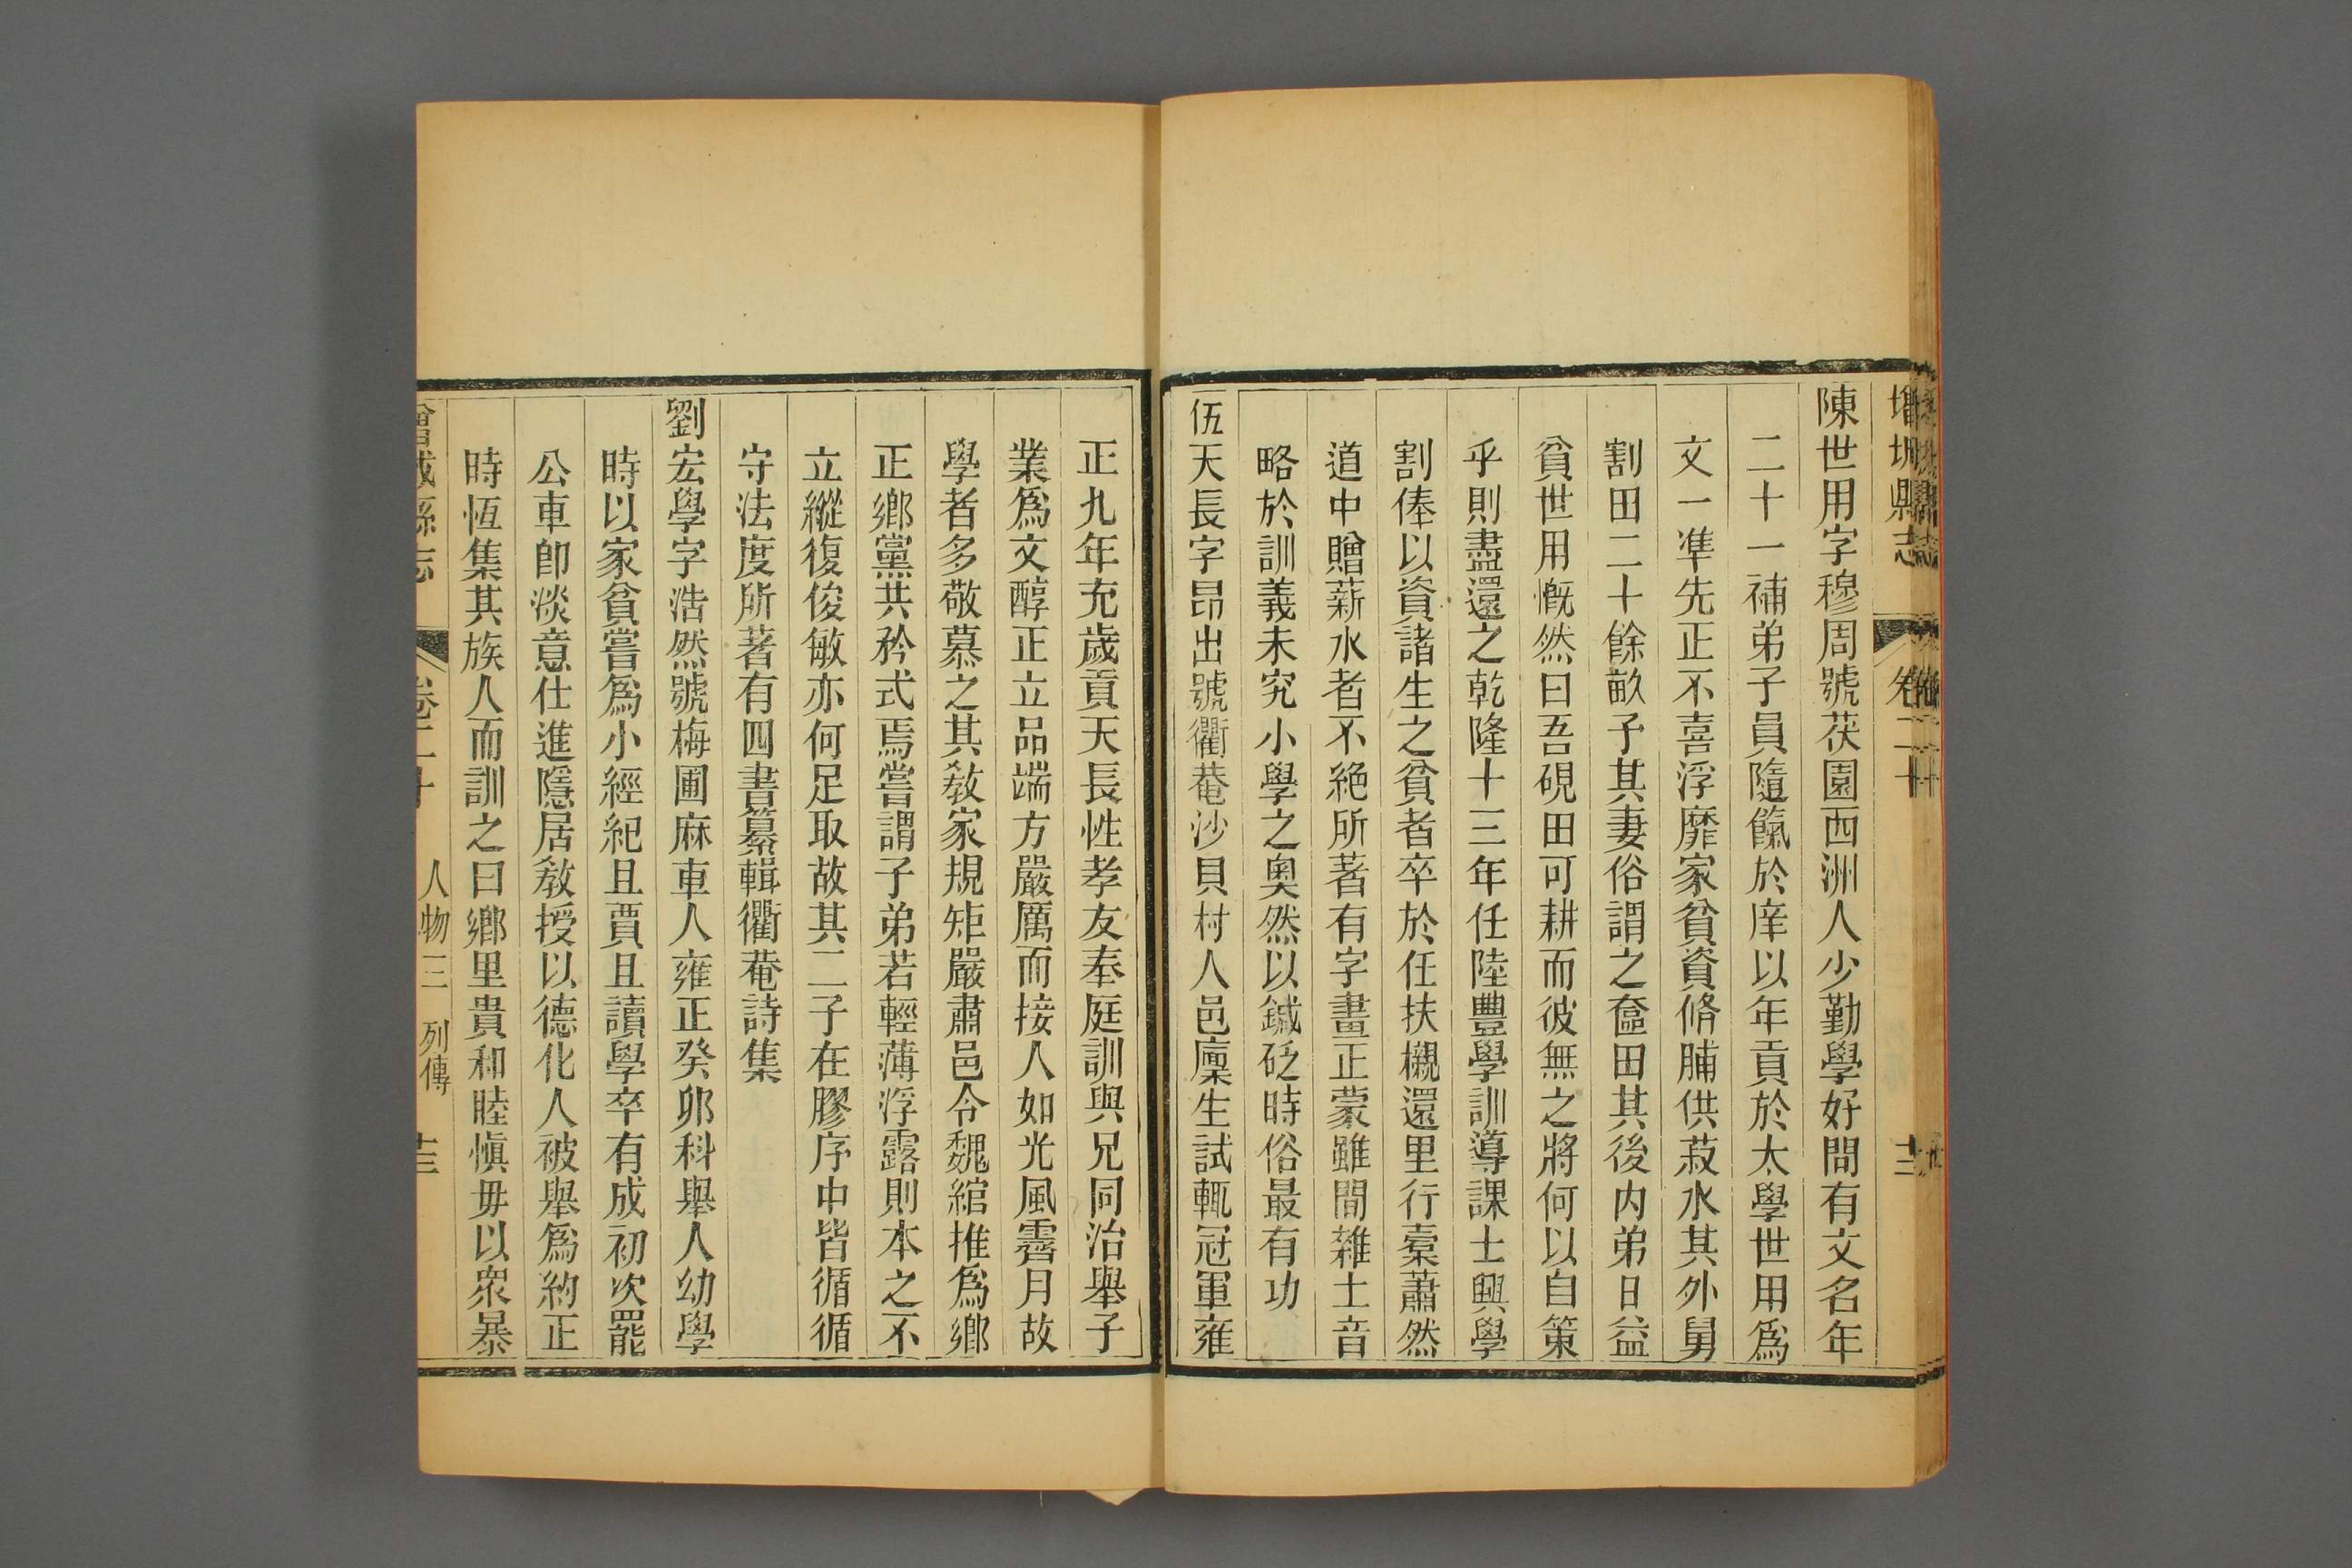 陳世用字穆周號茯園西洲人少勤學好問有文名年
二十一補弟子員隨餼於庠以年貢於太學世用爲
文一準先正不喜浮靡家貧資脩脯供菽水其外舅
割田二十餘畝予其妻俗謂之奩田其後内弟日益
貧世用慨然曰吾硯田可耕而彼無之將何以自策
乎則盡還之乾隆十三年任陸豐學訓導課士興學
割俸以資諸生之貧者卒於任扶櫬還里行橐蕭然
道中贈薪水者不絶所著有字畫正蒙雖間雜土音
略於訓義未究小學之奥然以鍼砭時俗最有功
伍天長字昂出號衢菴沙貝村人邑廩生試輒冠軍雍
正九年充歲貢天長性孝友奉庭訓與兄同治舉子
業爲文醇正立品端方嚴厲而接人如光風霽月故
學者多敬慕之其敎家規矩嚴肅邑令魏綰推爲鄉
正鄉黨共矜式焉嘗謂子弟若輕薄浮露則本之不
立縱復俊敏亦何足取故其二子在膠序中皆循循
守法度所著有四書纂輯衢菴詩集
劉宏學字浩然號梅圃麻車人雍正癸卯科舉人幼學
時以家貧嘗爲小經紀且賈且讀學卒有成初次罷
公車卽淡意仕進隱居敎授以德化人被舉爲約正
時恆集其族人而訓之曰鄉里貴和睦愼毋以衆暴
增城縣志 卷二十 人物三 列傳 十三